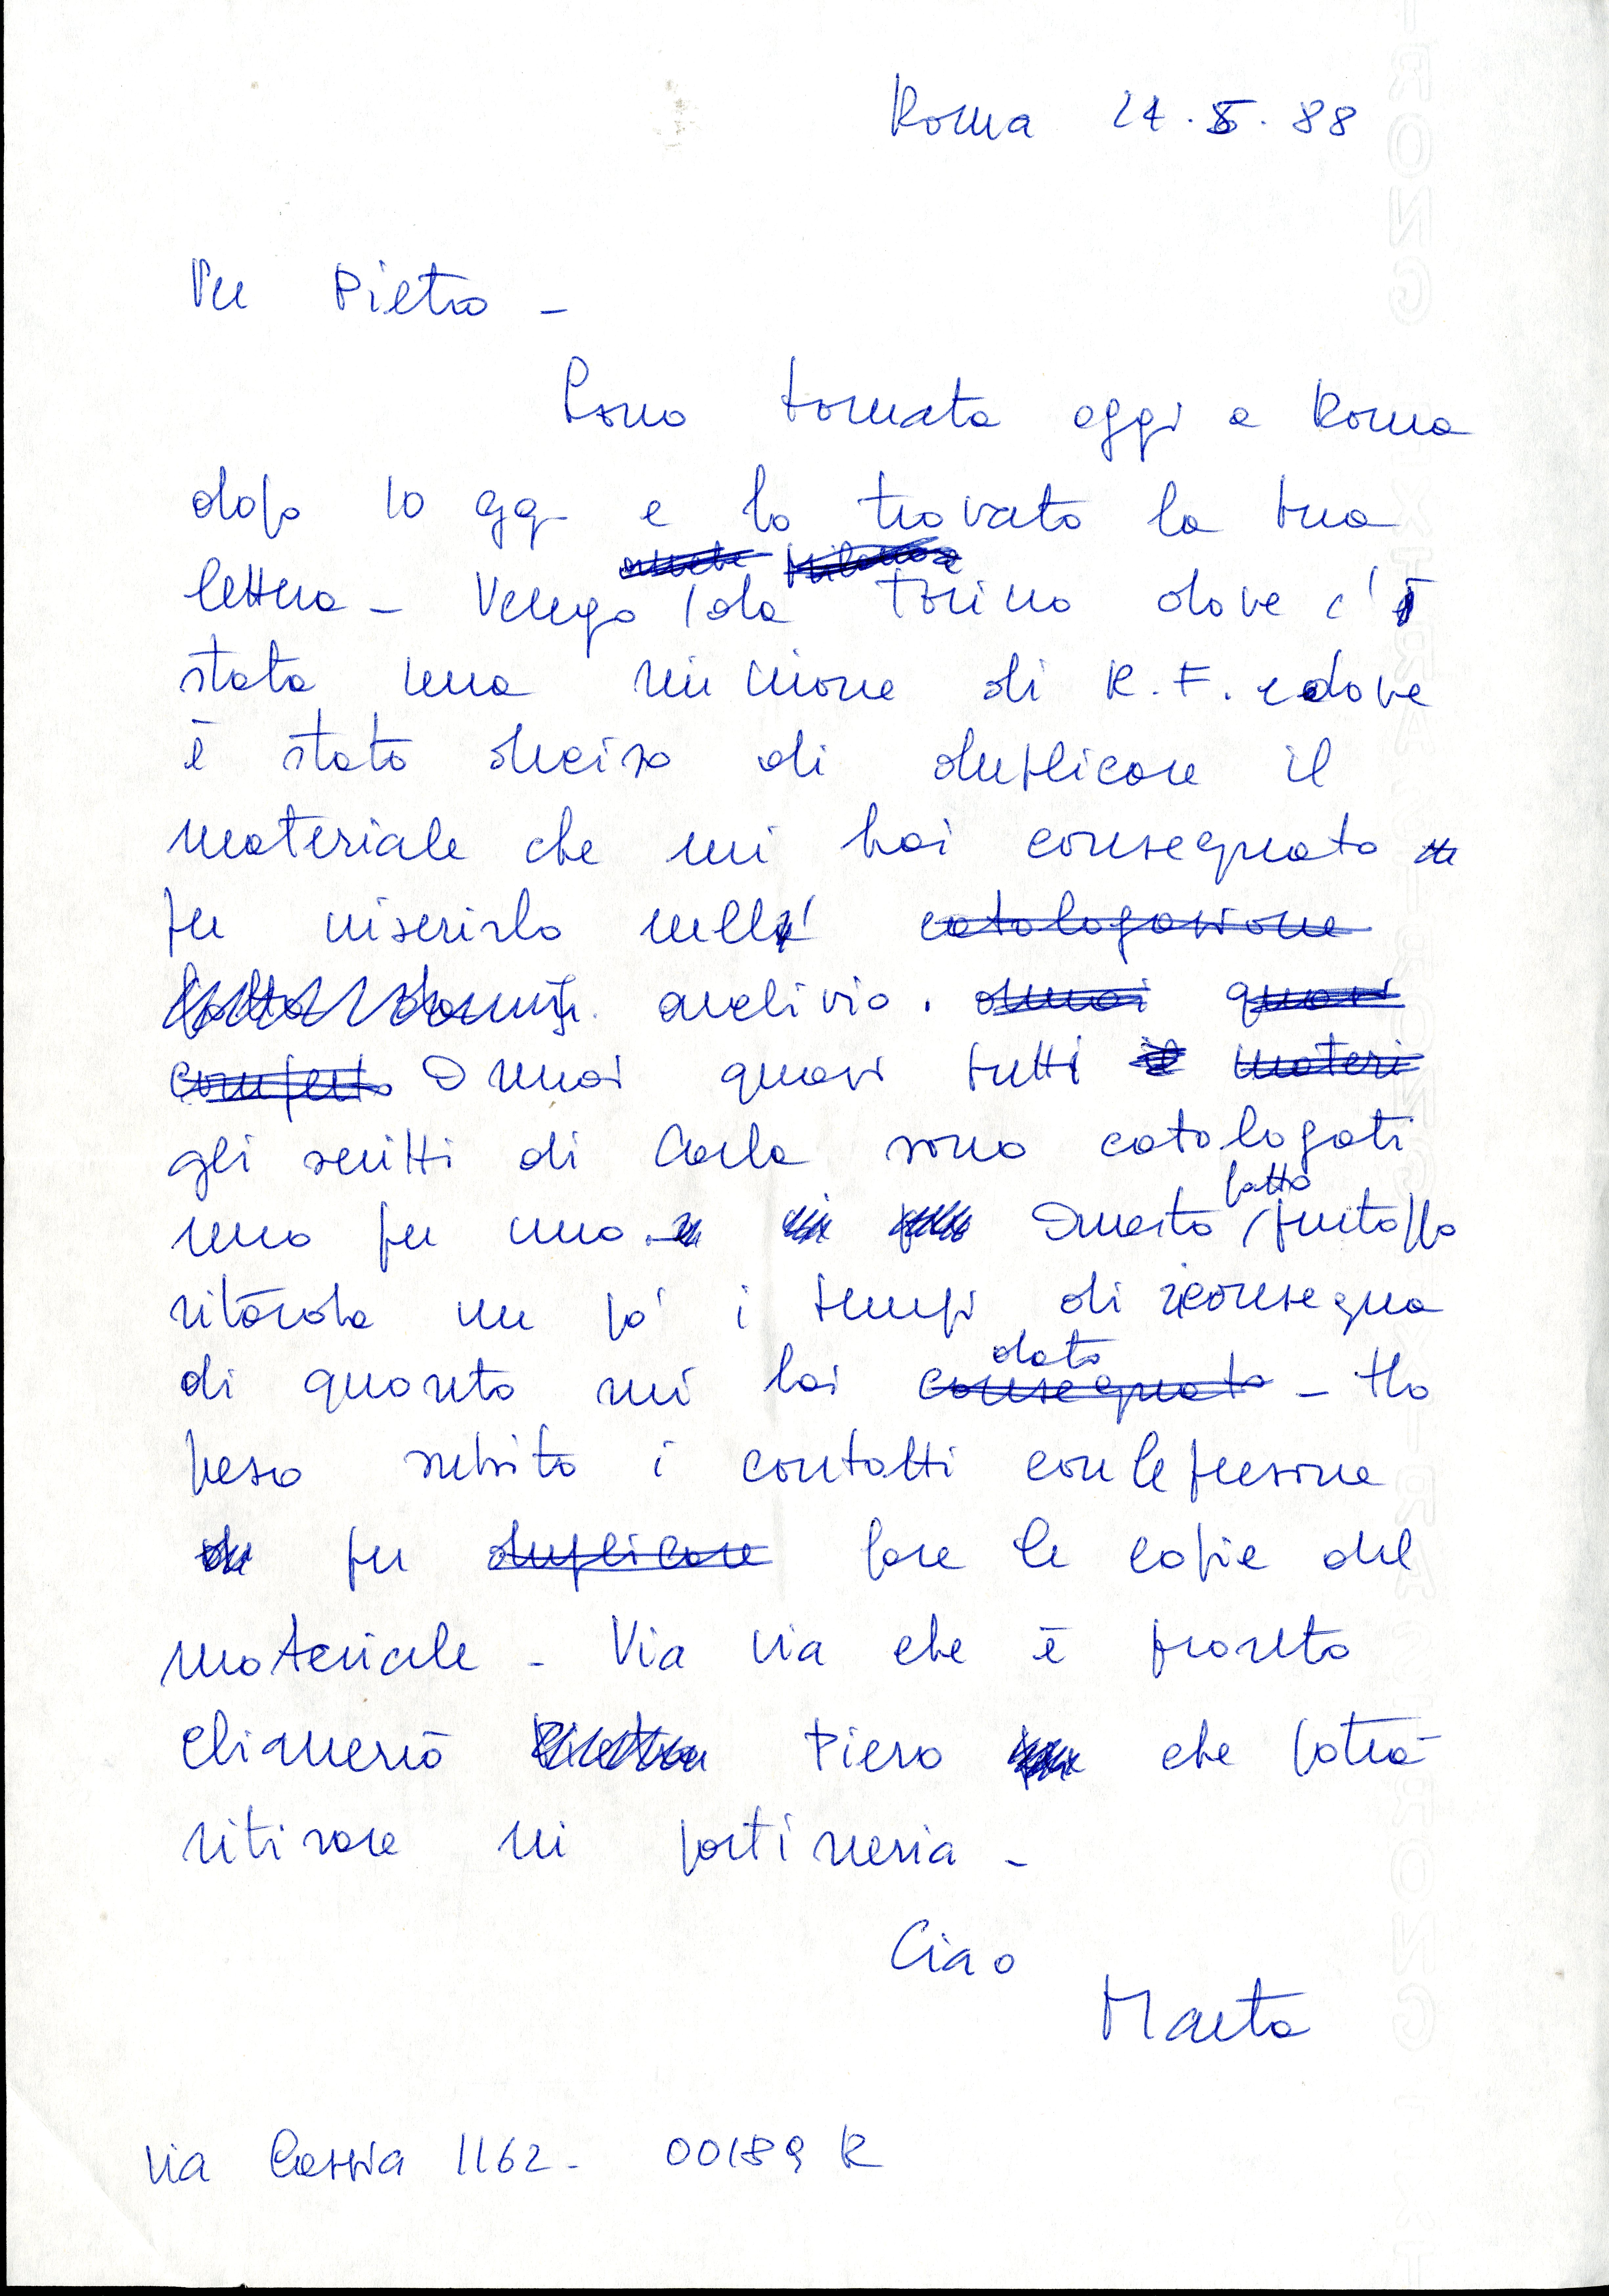 Roma 24.5.88
Per Pietro -
Sono tornata oggi a Roma
dopo 10 gg. e ho trovato la tua
lettera - Vengo da Torino dove c'è
stata una riunione di R.F. e dove
è stato deciso di duplicare il
materiale che mi hai consegnato
per inserirlo nell' catalogazione
archivio. ormai quasi
completo Ormai quasi tutti il materi
gli scritti di Carla sono catalogati
fatto
uno per uno. Questo purtoppo
ritarda un po' i tempi di riconsegna
dato
di quanto mi hai consegnato - Ho
preso subito i contatti con le persone
per duplicare fare le copie del
materiale - Via via che è pronto
chiamerò Piero che potrà
ritirare in portineria -
Ciao
Marta
Via Cassia 1162 - 00189 R